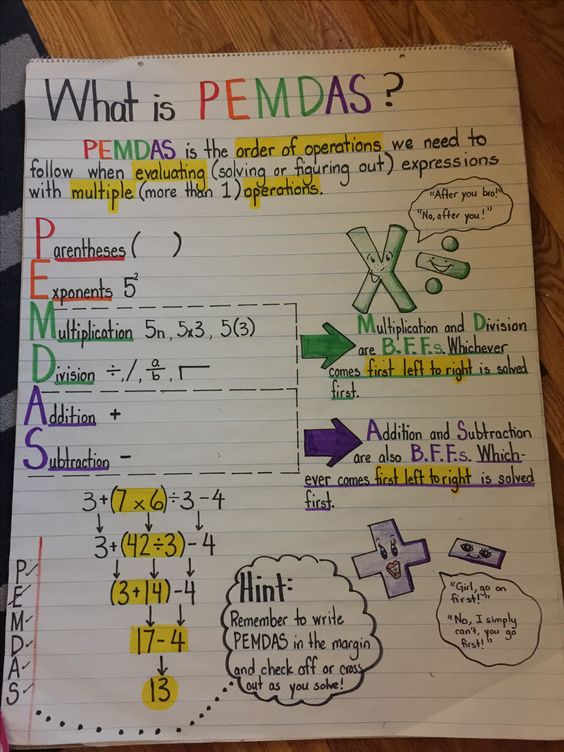 What is PEMDAS?
PEMDAS is the order of operations we need to
follow when evaluating (solving or figuring out) expressions
with multiple (more than 1) operations.
"After you bro!"
"No, after you!"
Parentheses ( )
Exponents 5²
Multiplication 5n, 5x3, 5(3)
Division ÷, /, a/b, ┌─
Addition +
Subtraction -
Multiplication and Division
are B.F.F.s. Whichever
comes first left to right is solved
first.
Addition and Subtraction
are also B.F.F.s. Which-
ever comes first left to right is solved
first.
3+(7x6)÷3-4
3+(42÷3)-4
(3+14)-4
17-4
13
P✓
E✓
M✓
D✓
A✓
S✓
Hint:
Remember to write
PEMDAS in the margin
and check off or cross
out as you solve!
"Girl, go on
first!"
"No, I simply
can't, you go
first!"